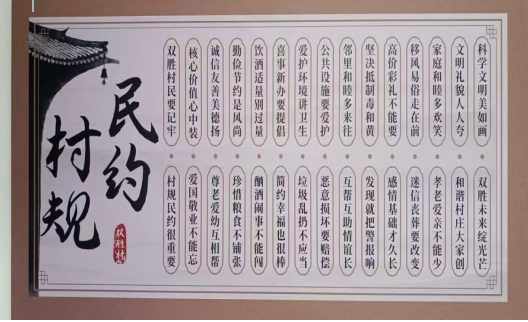 村规
民约
双胜村
双胜村民要记牢
村规民约很重要
核心价值心中装
爱国敬业不能忘
诚信友善美德扬
尊老爱幼互相帮
勤俭节约是风尚
珍惜粮食不铺张
饮酒适量别过量
酗酒闹事不能闯
喜事新办要提倡
简约幸福也很棒
爱护环境讲卫生
垃圾乱扔不应当
公共设施要爱护
恶意损坏要赔偿
邻里和睦多来往
互帮互助情谊长
坚决抵制毒和黄
发现就把警报响
高价彩礼不能要
感情基础才久长
移风易俗走在前
迷信丧葬要改变
家庭和睦多欢笑
孝老爱亲不能少
文明礼貌人人夸
和谐村庄大家创
科学文明美如画
双胜未来绽光芒